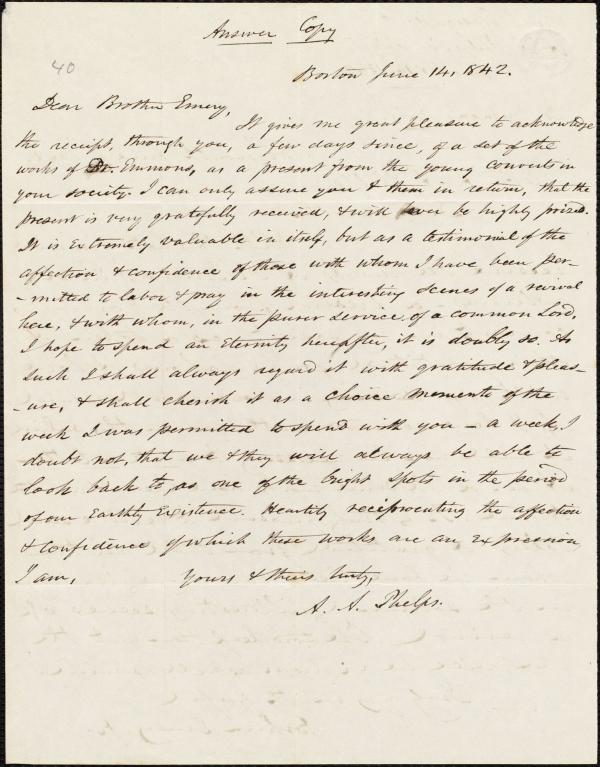 Answer Copy
40
Boston June 14, 1842.
Dear Brother Emery,
It gives me great pleasure to acknowledge
the receipt, through you, a few days since, of a set of the
works of Dr. Emmons, as a present from the young converts in
your society. I can only assure you & them in return, that the
present is very gratefully received, & will ever be highly prized.
It is Extremely valuable in itself, but as a testimonial of the
affection & confidence of those with whom I have been per-
-mitted to labor & pray in the interesting scenes of a revival
here, & with whom, in the purer service of a common Lord,
I hope to spend an Eternity hereafter, it is doubly so. As
such I shall always regard it with gratitude & pleas-
-ure, & shall cherish it as a choice memento of the
week I was permitted to spend with you – a week, I
doubt not, that we & they will always be able to
look back to, as one of the bright spots in the period
of our Earthly Existence. Heartily reciprocating the affection
& confidence of which these works are an expression,
I am, Yours & theirs truly,
A. A. Phelps.